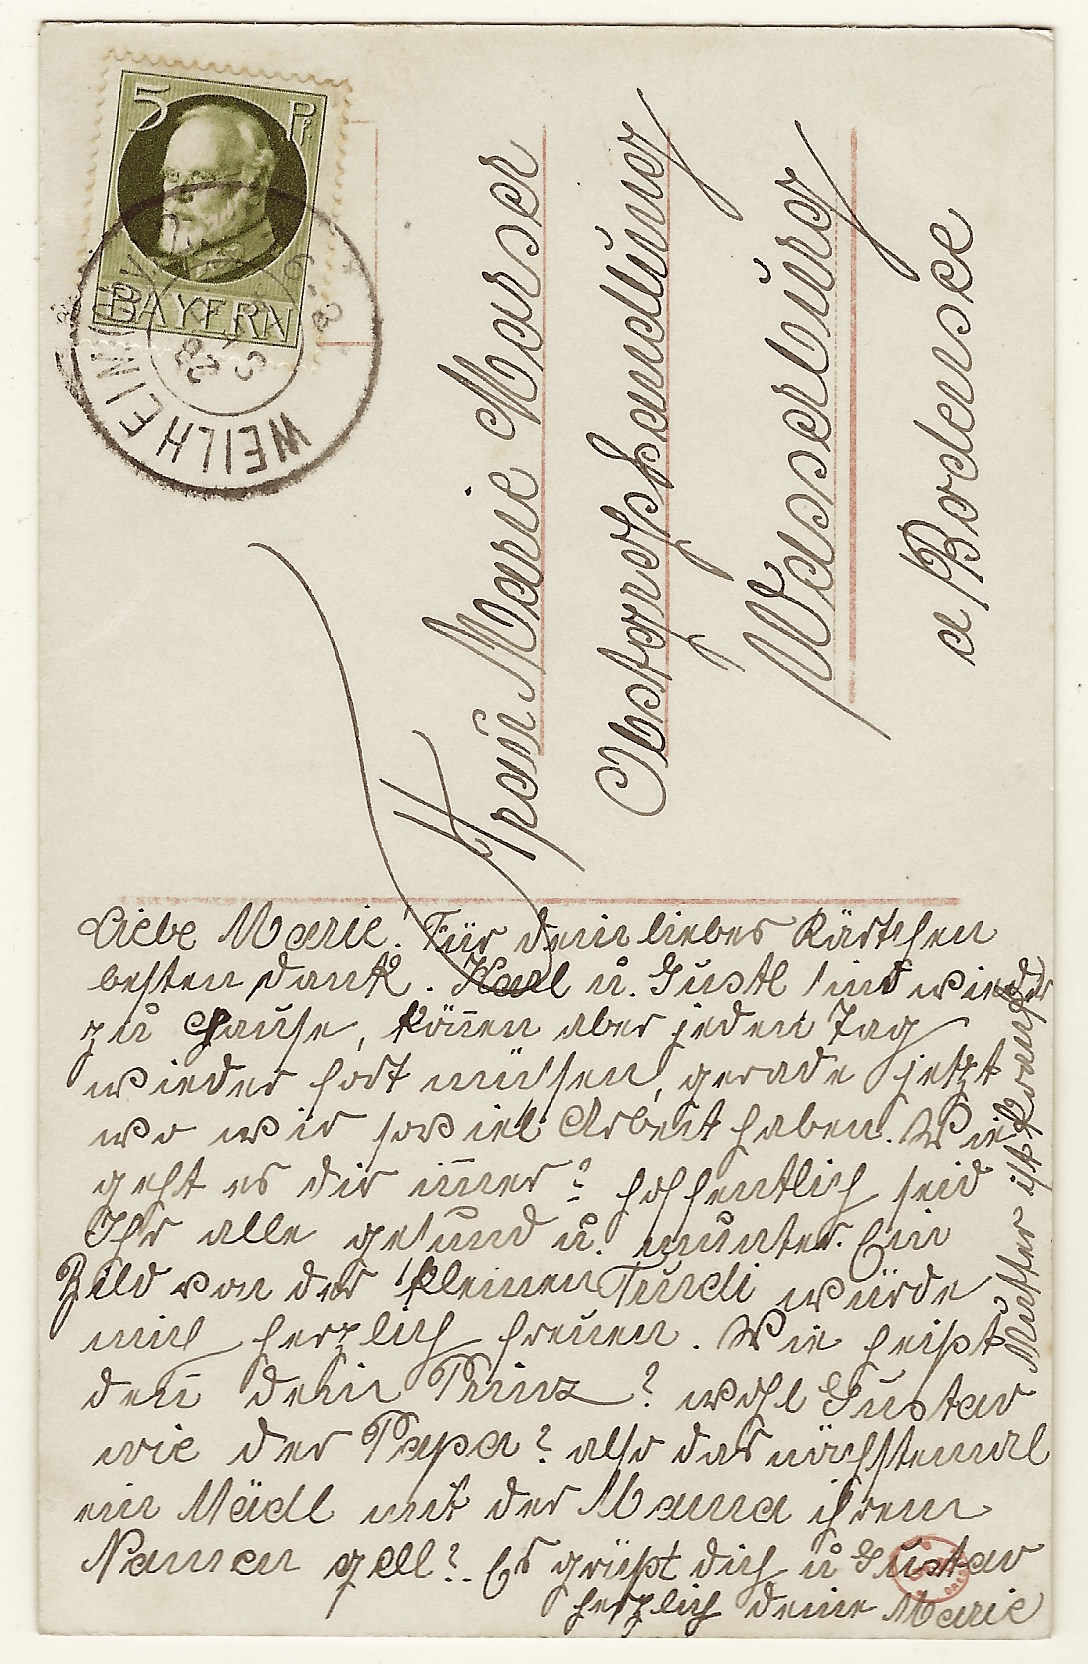 5 Pf.
BAYERN
WEILHEIM
Frau Marie Marser
Obstgroßhandlung
Wasserburg
a Bodensee
Liebe Marie! Für dein liebes Kärtchen
besten Dank. Karl u. Gustl sind wieder
zu Hause, kön̄en aber jeden Tag
wieder fort müssen, gerade jetzt
wo wir soviel Arbeit haben. Wie
geht es dir im̄er? hoffentlich seid
Ihr alle gesund u. munter. Ein
Bild von der kleinen würde
mich herzlich freuen. Wie heißt
den̄ dein Prinz? wohl Gustav
wie der Papa? also das nächstemal
ein Mädl mit der Mama ihrem
Namen gell? Es grüßt dich u Gustav
herzlich deine Marie
Mutter ist krank